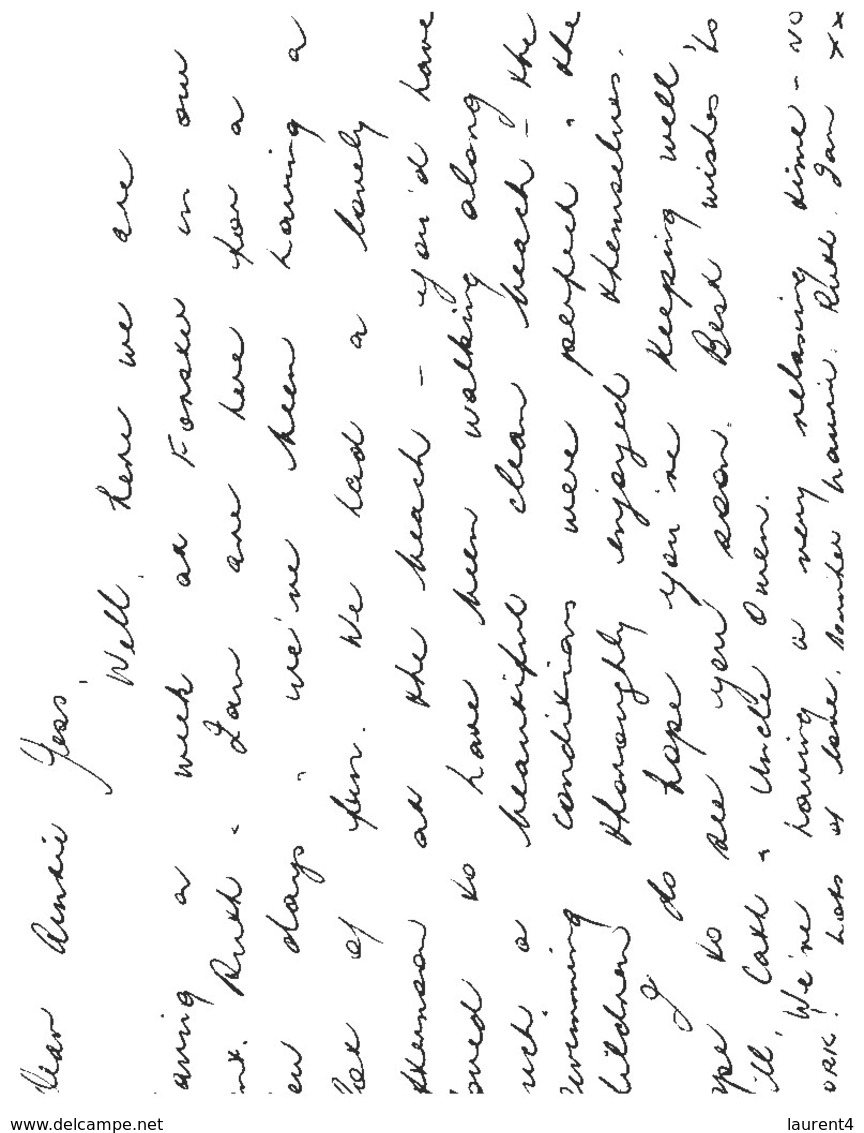 Dear Auntie Jess,
Well, here we are
aving a week at Forster in our
nt. Ruth & Ian are here for a
ew days & we've been having a
lot of fun. We had a lovely
afternoon at the beach – you'd have
oved to have been walking along
uch a beautiful clean beach – the
swimming conditions were perfect & the
hildren thoroughly enjoyed themselves.
I do hope you're keeping well,
ope to see you soon. Best wishes to
ill, Cath & Uncle Owen.
We're having a very relaxing time – NO
ORK! Lots of love, Laurie, Ruth, Ian xx
www.delcampe.net
laurent4